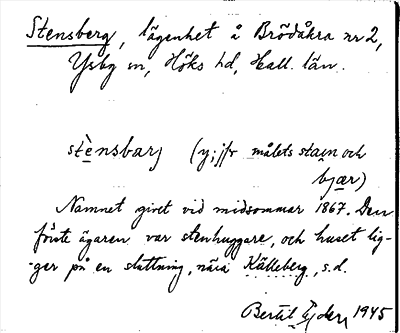 Stensberg, lägenhet å Brödåkra nr 2,
Ysby sn, Höks hd, Hall. län.
stènsbarj (y; jfr målets stain och
bjær)
Namnet givet vid midsommar 1867. Den
förste ägaren var stenhuggare, och huset lig-
-ger på en sluttning, nära Källeberg, s.d.
Bertil Ejder, 1945